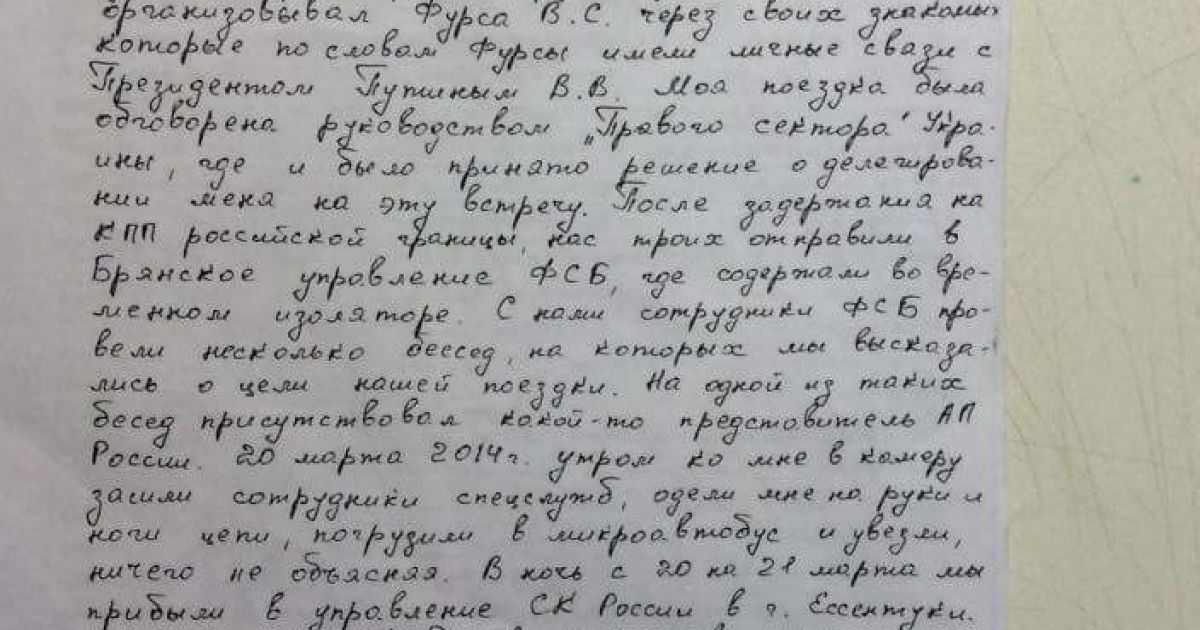 организовывал Фурса В.С. через своих знакомых
которые по словам Фурсы имели личные связи с
Президентом Путиным В.В. Моя поездка была
обговорена руководством „Правого сектора" Укра-
ины, где и было принято решение о делегирова-
нии меня на эту встречу. После задержания на
КПП российской границы, нас троих отправили в
Брянское управление ФСБ, где содержали во вре-
менном изоляторе. С нами сотрудники ФСБ про-
вели несколько бессед, на которых мы высказа-
лись о цели нашей поездки. На одной из таких
бесед присутствовал какой-то представитель АП
России. 20 марта 2014г. утром ко мне в камеру
зашли сотрудники спецслужб, одели мне на руки и
ноги цепи, погрузили в микроавтобус и увезли,
ничего не объясняя. В ночь с 20 на 21 марта мы
прибыли в управление СК России в г. Ессентуки.